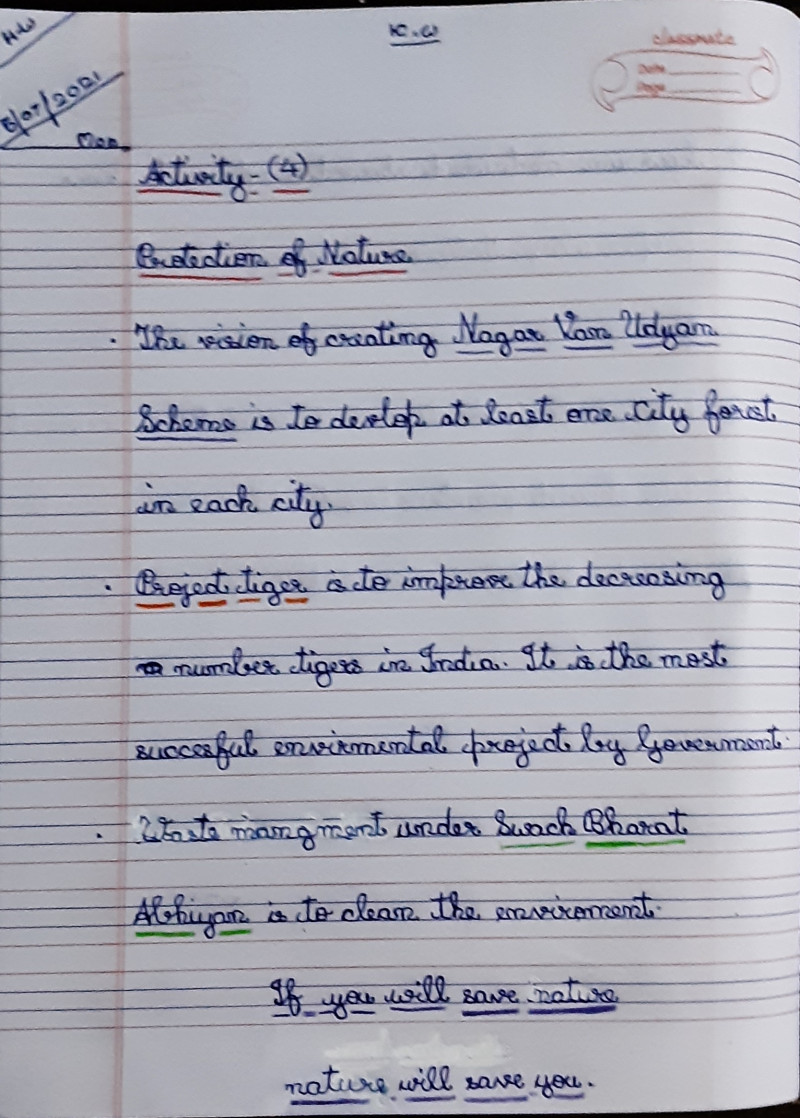 H.W
K.W
classmate
Date
Page
/07/2021
Activity - (4)
Protection of Nature
· The vision of creating Nagar Van Udyam
Scheme is to develop at least one city forest
in each city.
· Project tiger is to improve the decreasing
number tigers in India. It is the most
succesful envirmental project by Goverment.
· Waste mangment under Swach Bharat
Abhiyan is to clean the enviroment.
If you will save nature
nature will save you.